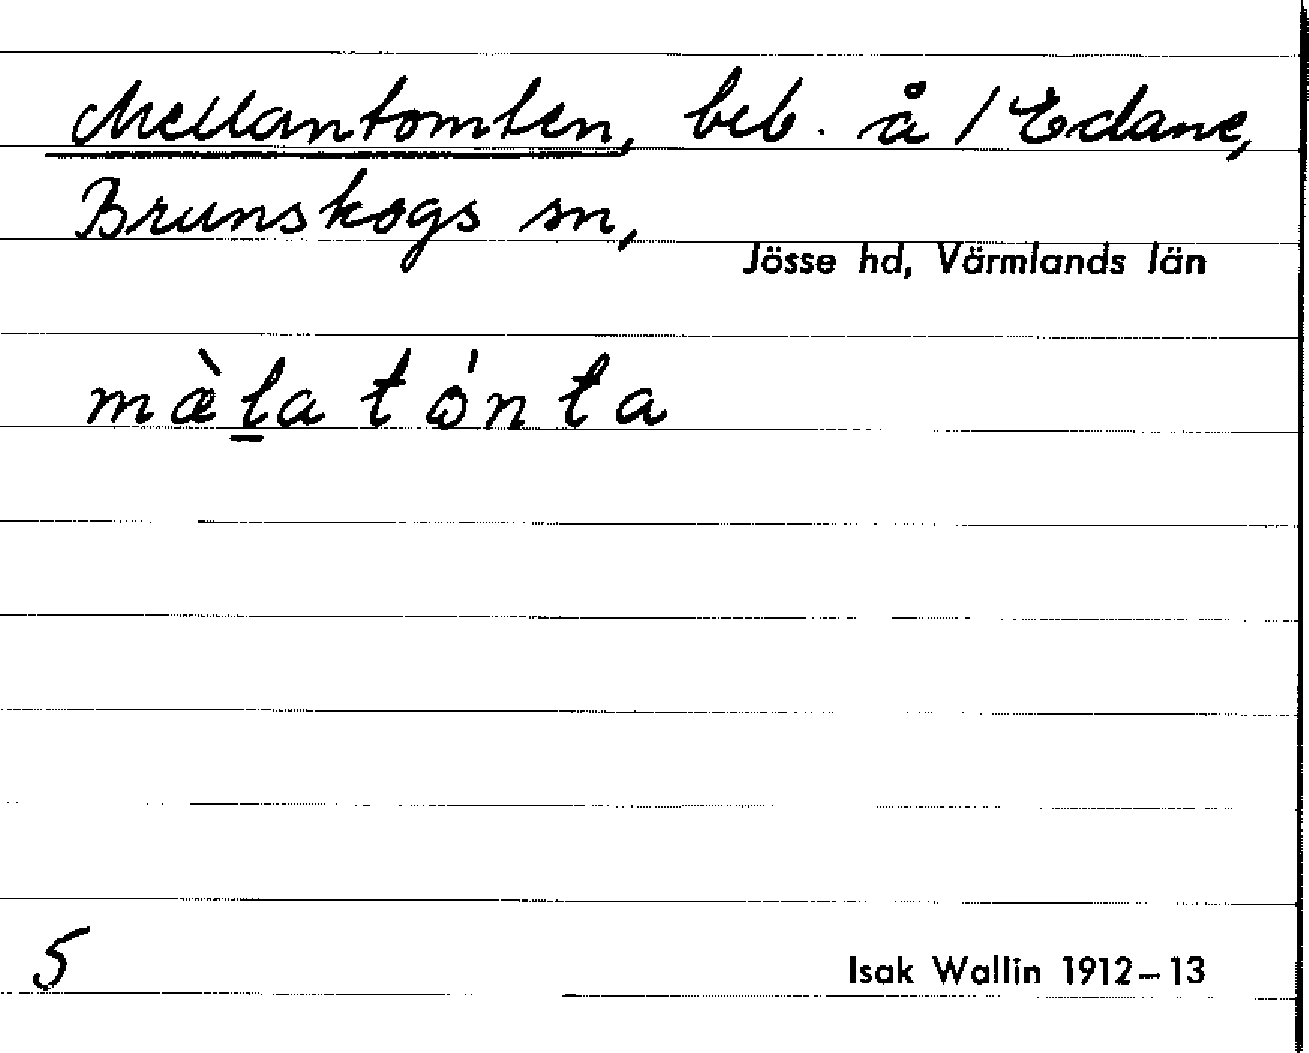 Mellantomten, beb. å 1 Edane,
Brunskogs sn,
Jösse hd, Värmlands län
mæ̀l̠a tǿnta
5
Isak Wallin 1912–13